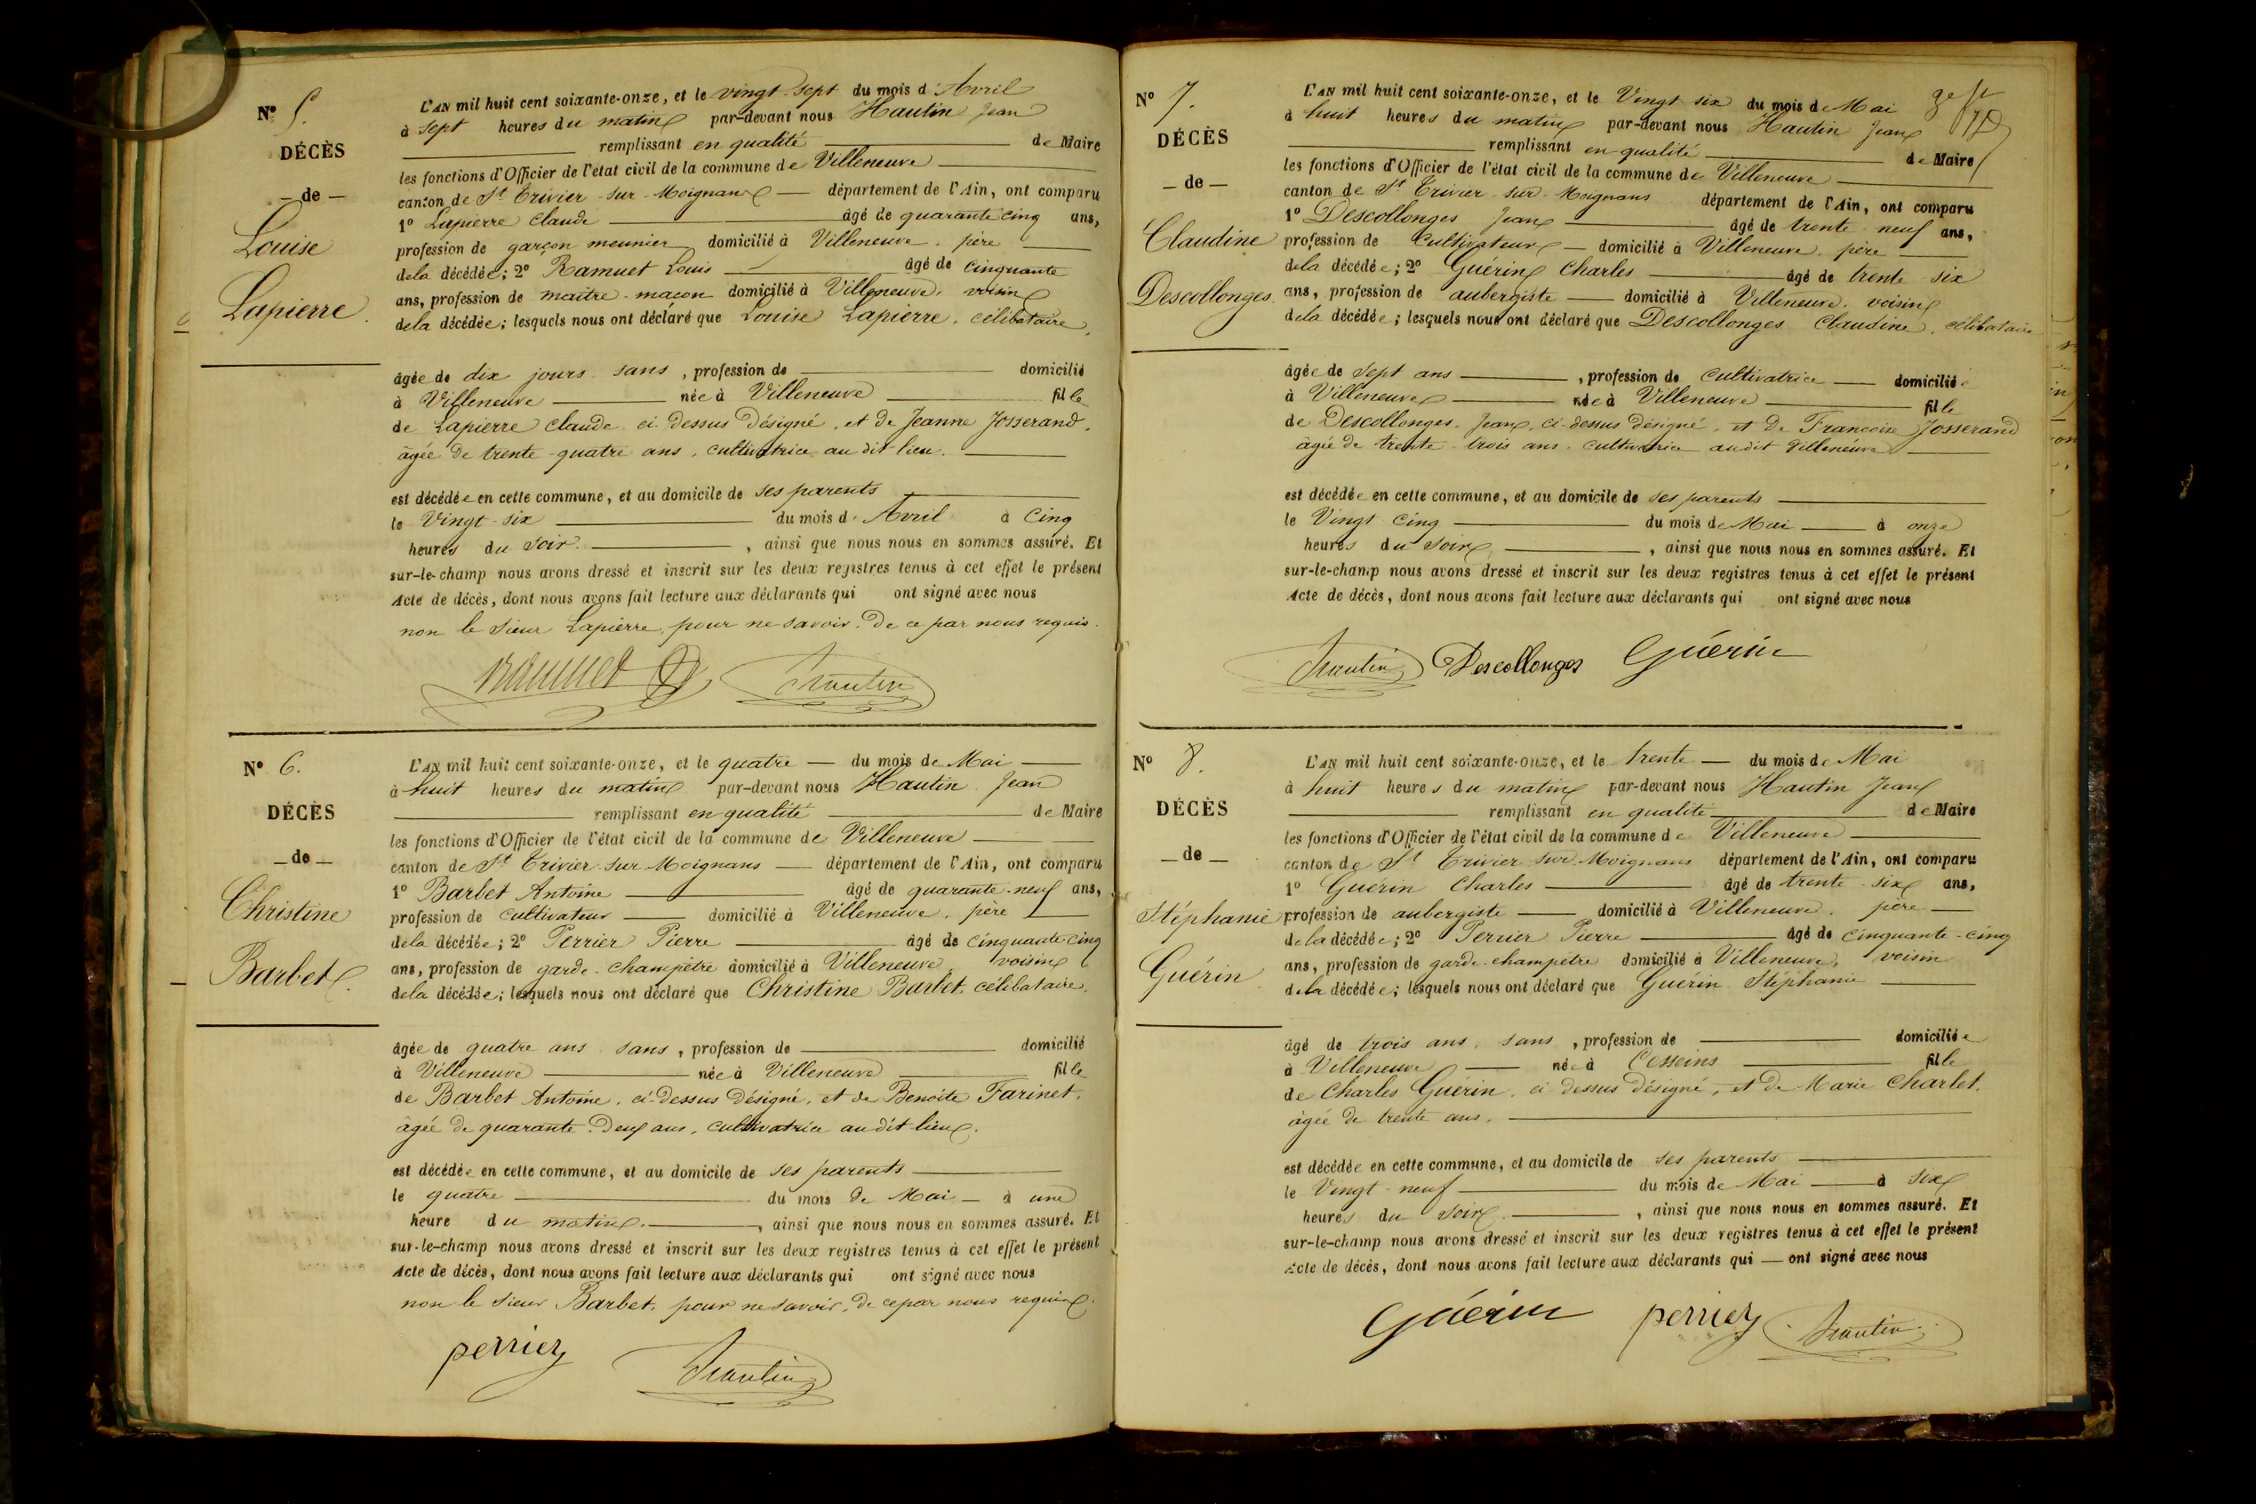 N° 5.
DÉCÈS
— de —
Louise
Lapierre.
L'AN mil huit cent soixante-onze, et le vingt-sept du mois d'Avril
à sept heures du matin par-devant nous Hautin Jean
remplissant en qualité de Maire
les fonctions d'Officier de l'état civil de la commune de Villeneuve
canton de St Trivier-sur-Moignans département de l'Ain, ont comparu
1° Lapierre Claude âgé de quarante cinq ans,
profession de garçon meunier domicilié à Villeneuve. père
de la décédée; 2° Ramuet Louis âgé de cinquante
ans, profession de maître-maçon domicilié à Villeneuve, voisin
de la décédée; lesquels nous ont déclaré que Louise Lapierre, célibataire,
âgée de dix jours sans, profession de domicilié
à Villeneuve née à Villeneuve fille
de Lapierre Claude ci-dessus désigné, et de Jeanne Josserand,
âgée de trente-quatre ans, cultivatrice au dit lieu.
est décédée en cette commune, et au domicile de ses parents
le Vingt-six du mois d'Avril à cinq
heures du soir, ainsi que nous nous en sommes assuré. Et
sur-le-champ nous avons dressé et inscrit sur les deux registres tenus à cet effet le présent
Acte de décès, dont nous avons fait lecture aux déclarants qui ont signé avec nous
non le sieur Lapierre, pour ne savoir, de ce par nous requis.
Ramuet Hautin
N° 6.
DÉCÈS
— de —
Christine
Barbet.
L'AN mil huit cent soixante-onze, et le quatre du mois de Mai
à huit heures du matin par-devant nous Hautin Jean
remplissant en qualité de Maire
les fonctions d'Officier de l'état civil de la commune de Villeneuve
canton de St Trivier-sur-Moignans département de l'Ain, ont comparu
1° Barbet Antoine âgé de quarante-neuf ans,
profession de cultivateur domicilié à Villeneuve, père
de la décédée; 2° Perrier Pierre âgé de cinquante-cinq
ans, profession de garde-champêtre domicilié à Villeneuve voisin
de la décédée; lesquels nous ont déclaré que Christine Barbet, célibataire,
âgée de quatre ans sans, profession de domicilié
à Villeneuve née à Villeneuve fille
de Barbet Antoine, ci-dessus désigné, et de Benoite Farinet,
âgée de quarante-deux ans, cultivatrice au dit lieu.
est décédée en cette commune, et au domicile de ses parents
le quatre du mois de Mai à une
heure du matin, ainsi que nous nous en sommes assuré. Et
sur-le-champ nous avons dressé et inscrit sur les deux registres tenus à cet effet le présent
Acte de décès, dont nous avons fait lecture aux déclarants qui ont signé avec nous
non le sieur Barbet, pour ne savoir, de ce par nous requis.
perrier Hautin
N° 7.
DÉCÈS
— de —
Claudine
Descollonges.
L'AN mil huit cent soixante-onze, et le Vingt-six du mois de Mai
à huit heures du matin par-devant nous Hautin Jean
remplissant en qualité de Maire
les fonctions d'Officier de l'état civil de la commune de Villeneuve
canton de St Trivier-sur-Moignans département de l'Ain, ont comparu
1° Descollonges Jean âgé de trente-neuf ans,
profession de cultivateur domicilié à Villeneuve, père
de la décédée; 2° Guérin Charles âgé de trente-six
ans, profession de aubergiste domicilié à Villeneuve, voisin
de la décédée; lesquels nous ont déclaré que Descollonges Claudine, célibataire
âgée de sept ans, profession de cultivatrice domiciliée
à Villeneuve née à Villeneuve fille
de Descollonges Jean, ci-dessus désigné, et de Francoise Josserand
âgée de trente-trois ans, cultivatrice audit Villeneuve
est décédée en cette commune, et au domicile de ses parents
le Vingt-cinq du mois de Mai à onze
heures du soir, ainsi que nous nous en sommes assuré. Et
sur-le-champ nous avons dressé et inscrit sur les deux registres tenus à cet effet le présent
Acte de décès, dont nous avons fait lecture aux déclarants qui ont signé avec nous
Hautin Descollonges Guérin
N° 8.
DÉCÈS
— de —
Stéphanie
Guérin
L'AN mil huit cent soixante-onze, et le trente du mois de Mai
à huit heures du matin par-devant nous Hautin Jean
remplissant en qualité de Maire
les fonctions d'Officier de l'état civil de la commune de Villeneuve
canton de St Trivier-sur-Moignans département de l'Ain, ont comparu
1° Guérin Charles âgé de trente-six ans,
profession de aubergiste domicilié à Villeneuve, père
de la décédée; 2° Perrier Pierre âgé de cinquante-cinq
ans, profession de garde-champêtre domicilié à Villeneuve, voisin
de la décédée; lesquels nous ont déclaré que Guérin Stéphanie
âgé de trois ans, sans, profession de domiciliée
à Villeneuve née à Cesseins fille
de Charles Guérin, ci-dessus désigné, et de Marie Charlet,
âgée de trente ans,
est décédée en cette commune, et au domicile de ses parents
le Vingt-neuf du mois de Mai à six
heures du soir, ainsi que nous nous en sommes assuré. Et
sur-le-champ nous avons dressé et inscrit sur les deux registres tenus à cet effet le présent
Acte de décès, dont nous avons fait lecture aux déclarants qui — ont signé avec nous
Guérin perrier Hautin